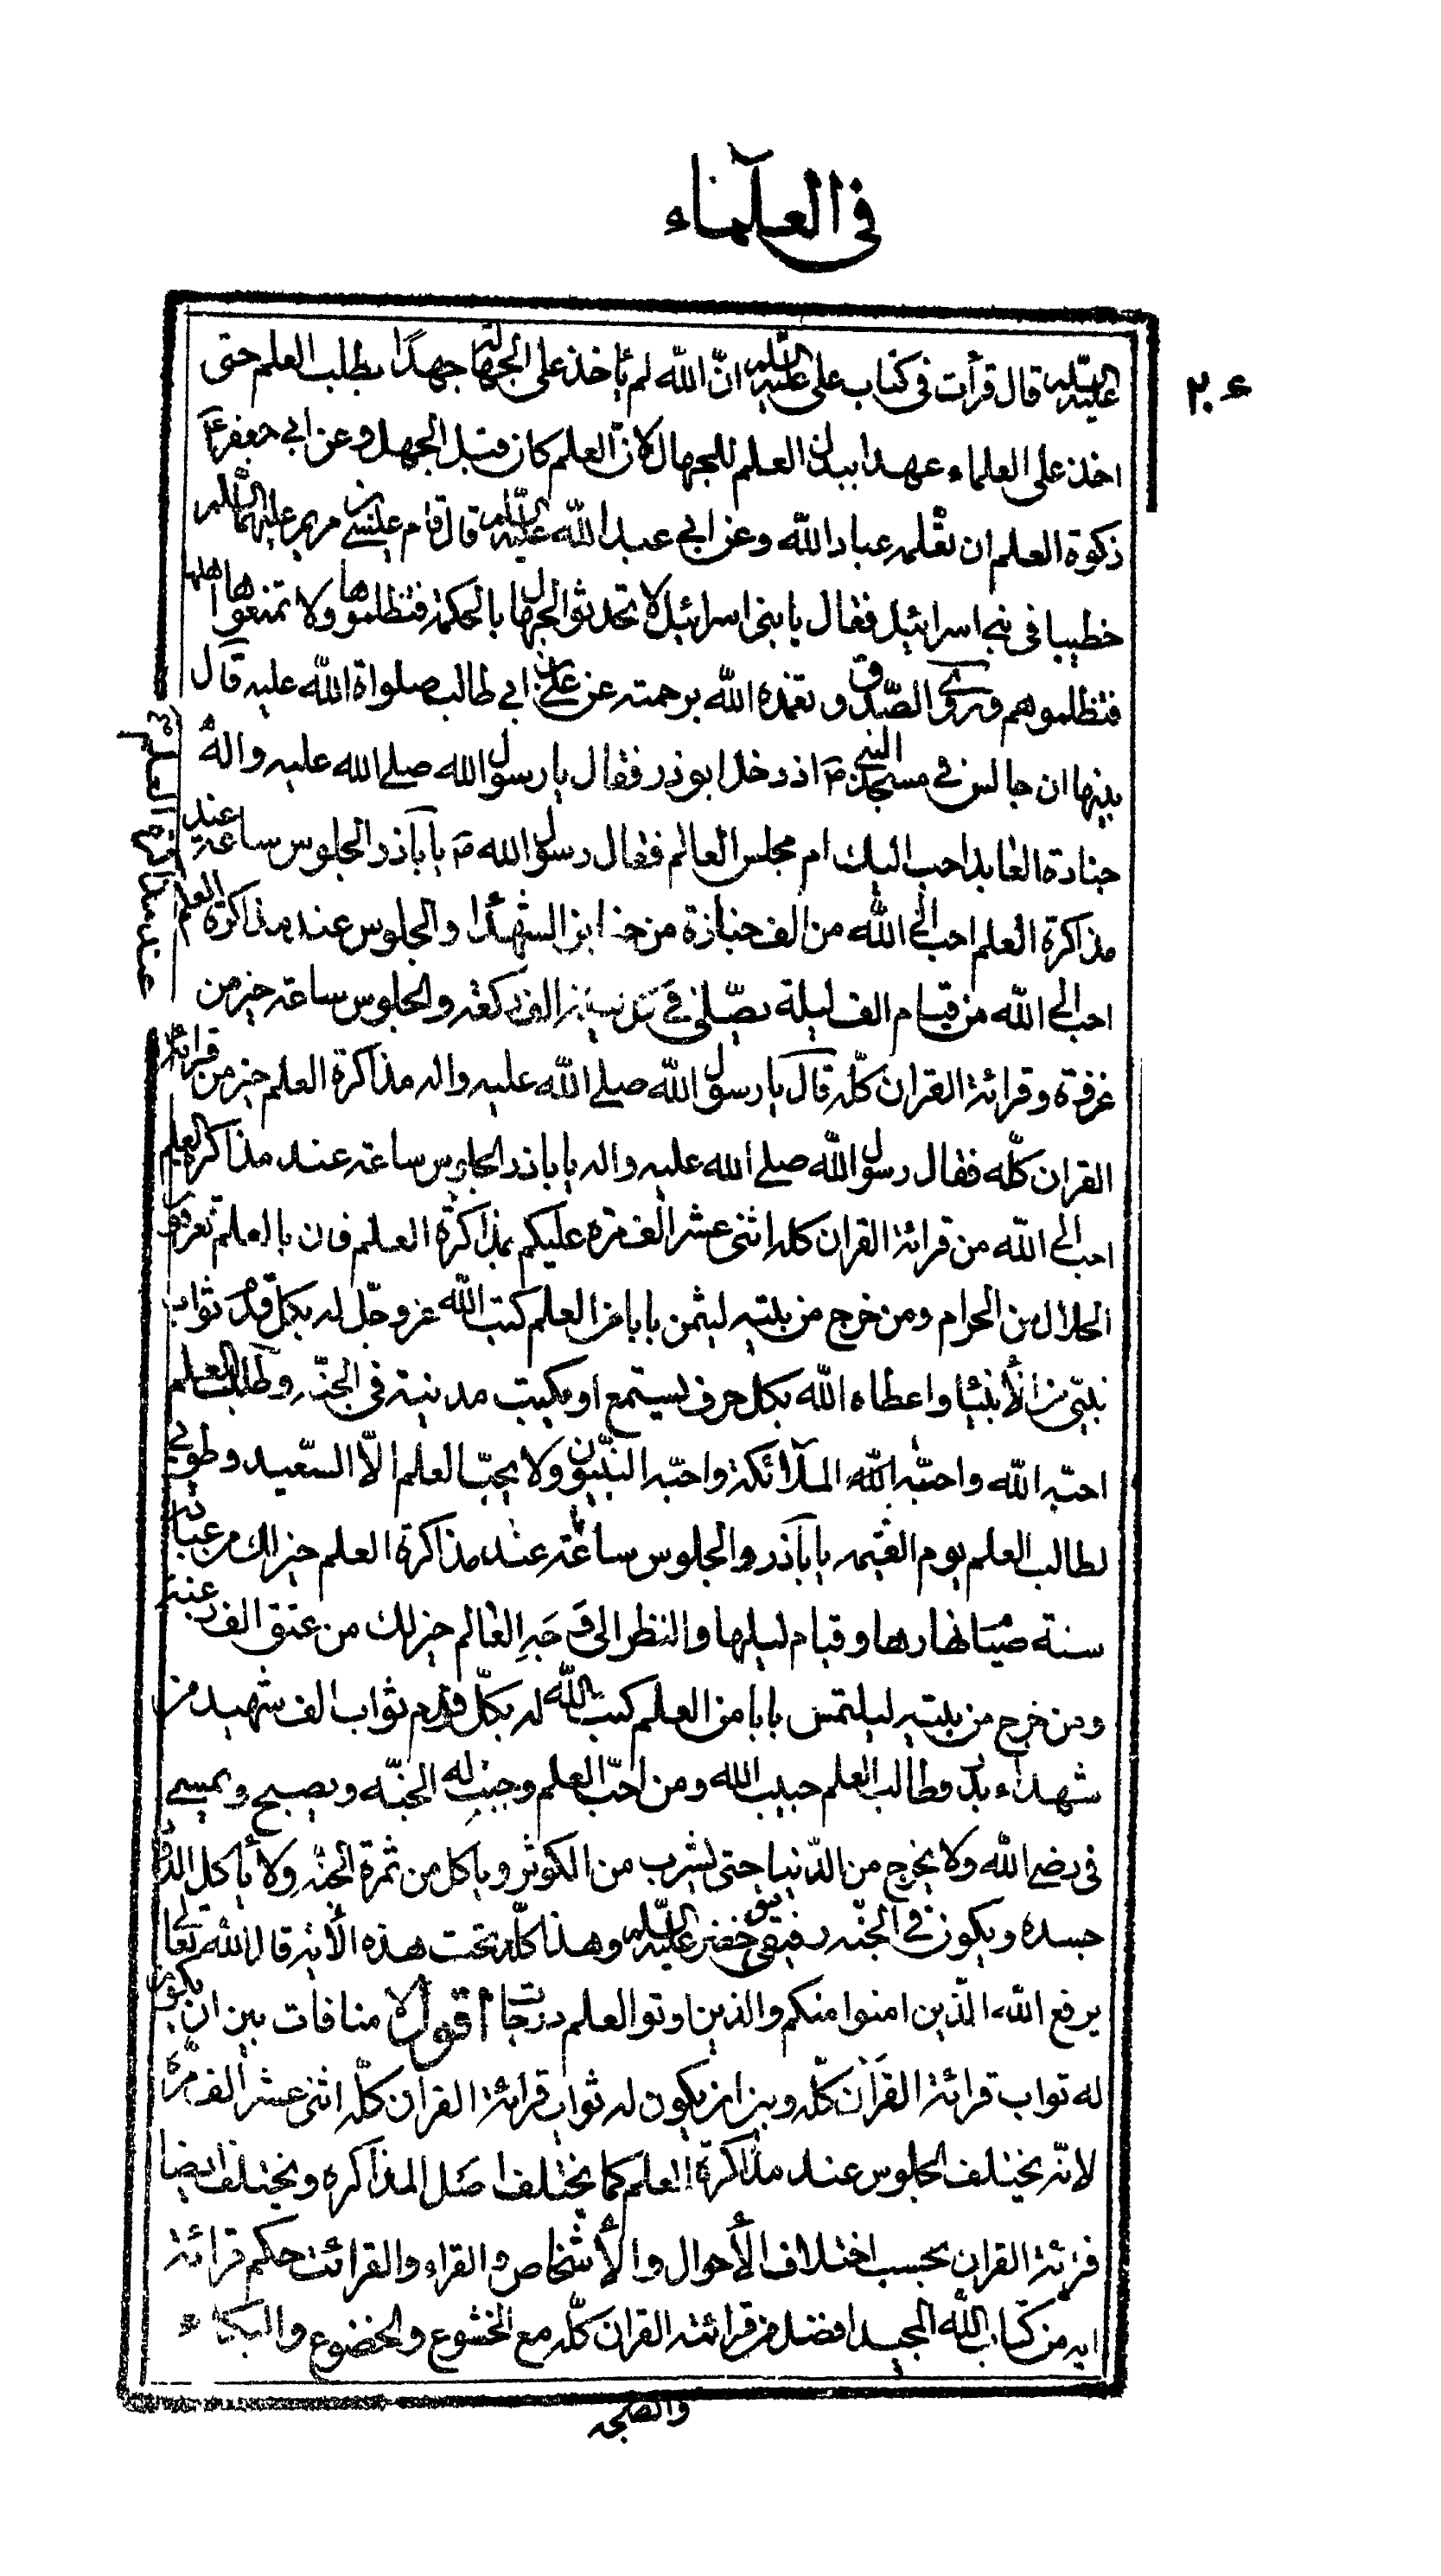 في العلمآء
٢٠٤
عليه السلم قال قرأت في كتاب علي عليه السلم انّ الله لم يأخذ على الجهال جهدًا بطلب العلم حتى
اخذ على العلماء عهدا ببذل العلم للجهال لانّ العلم كان قبل الجهل وعن ابي جعفر ع
زكوة العلم ان تعلمه عباد الله وعن ابي عبد الله عليه السلم قال قام عيسى بن مريم عليهما السلم
خطيبا في بني اسرائيل فقال يا بني اسرائيل لا تحدثوا الجهال بالحكمة فتظلموها ولا تمنعوها اهلها
فتظلموهم وروى الصّدوق و تغمده الله برحمته عن علي بن ابي طالب صلواة الله عليه قال
بينما ان جالس في مسجد النبي ص اذ دخل ابوذر فقال يا رسول الله صلى الله عليه واله
جنازة العابد احب اليك ام مجلس العالم فقال رسول الله ص يا باذر الجلوس ساعة عند
مذاكرة العلم احب الى الله من الف جنازة من جنايز الشهدا والجلوس عند مذاكرة العلم
احب الى الله من قيام الف ليلة يصلّى في كل ليلة الف ركعة والجلوس ساعة خير من
غزوة وقرائة القران كلّه قال يا رسول الله صلى الله عليه واله مذاكرة العلم خير من قرائة
القران كلّه فقال رسول الله صلى الله عليه واله يا باذر الجلوس ساعة عند مذاكرة العلم
احب الى الله من قرائة القران كله اثنى عشر الف مرة عليكم بمذاكرة العلم فان بالعلم تعرفون
الحلال من الحرام ومن خرج من بيته ليلتمس بابا من العلم كتب الله عز وجلّ له بكل قدم ثواب
نبيّ من الأنبيا واعطاه الله بكل حرف يستمع او يكتب مدينة في الجنّة وطالب العلم
احبّه الله واحبّه الملائكة واحبّه النبيّون ولا يحبّ العلم الاّ السّعيد وطوبى
لطالب العلم يوم القيمة يا باذر والجلوس ساعة عند مذاكرة العلم خير لك من عبادة
سنة صيام نهارها وقيام ليلها والنظر الى وجه العالم خير لك من عتق الف رقبة
ومن خرج من بيته ليلتمس بابا من العلم كتب الله له بكلّ قدم ثواب الف شهيد من
شهداء بدر وطالب العلم حبيب الله ومن احبّ العلم وجبت له الجنّه ويصبح ويمسى
في رضى الله ولا يخرج من الدّنيا حتى يشرب من الكوثر وياكل من ثمرة الجنّة ولا يأكل الدّود
جسده ويكون في الجنّة رفيق خضر عليه السلم وهذا كلّه تحت هذه الأية قال الله تعالى
يرفع الله الّذين امنوا منكم والذين اوتوا العلم درجات اقول لا منافات بين ان يكون
له ثواب قرائة القران كلّه وبين ان يكون له ثواب قرائة القران كلّه اثنى عشر الف مرّة
لانّه يختلف الجلوس عند مذاكرة العلم كما يختلف اصل المذاكره ويختلف ايضا
قرئة القران بحسب اختلاف الأحوال والأشخاص والقراء والقرائت حكم قرائة
ايه من كتاب الله المجيد افضل من قرائة القران كلّه مع الخشوع والخضوع والبكاء